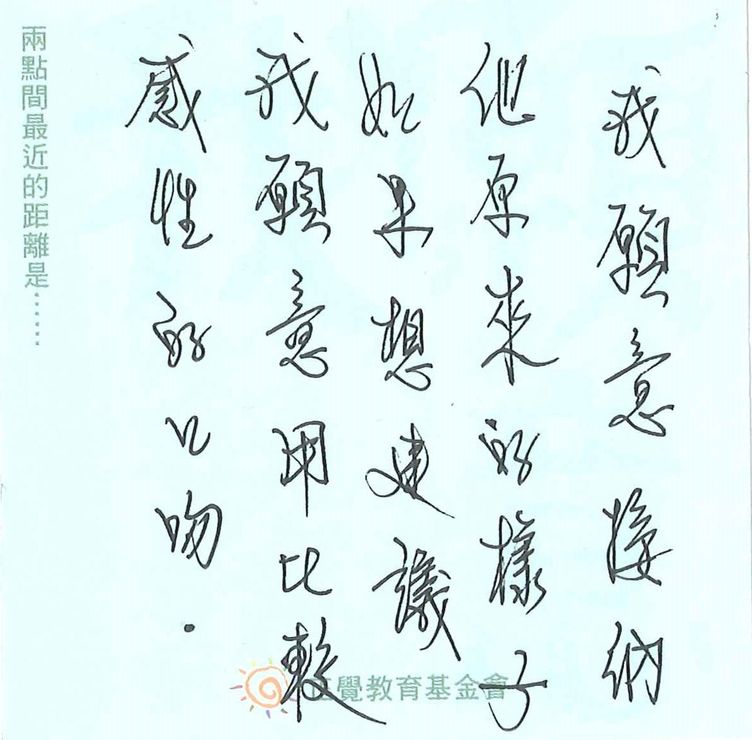 我願意接納
他原來的樣子
如果想建議
我願意用比較
感性的口吻.
兩點間最近的距離是……
正覺教育基金會